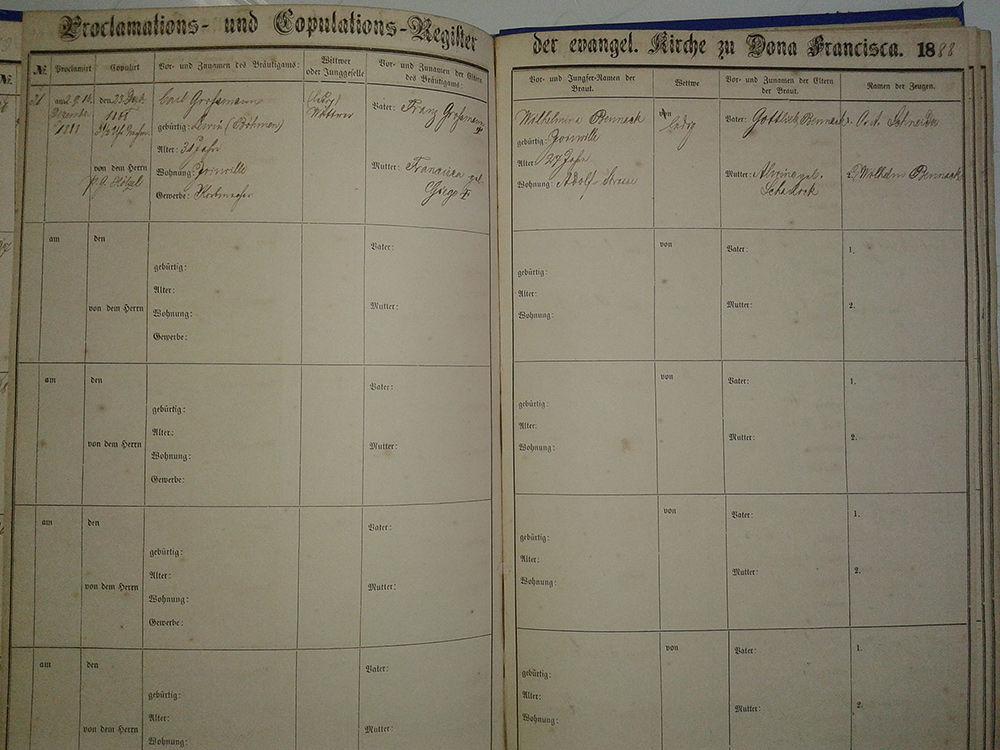 Proclamations- und Copulations-Register
der evangel. Kirche zu Dona Francisca. 1888
№ Proclamirt Copulirt Vor- und Zunamen des Bräutigams: Wittwer oder Junggeselle Vor- und Zunamen der Eltern des Bräutigams:
Vor- und Jungfer-Namen der Braut. Wittwe Vor- und Zunamen der Eltern der Braut. Namen der Zeugen.
31 am 2. 9. 16. den 23 Carl Grossmann (ledig) Vater: Franz Grossmann
Dezember 1888 gebürtig: (Böhmen) Wittwer
1888
Alter: 31 Jahr
von dem Herrn Wohnung: Joinville Mutter: Francisca gel.
P. Hölzel Gewerbe:
Wilhelmina Bennack von Vater: Gottlieb Bennack 1. Schneider
gebürtig: Joinville ledig
Alter: 27 Jahr
Wohnung: Adolf Strasse Mutter: Alwine gel. 2. Wilhelm Bennack
am den Vater:
gebürtig:
Alter:
von dem Herrn Wohnung: Mutter:
Gewerbe:
von Vater: 1.
gebürtig:
Alter: Mutter: 2.
Wohnung:
am den Vater:
gebürtig:
Alter:
von dem Herrn Wohnung: Mutter:
Gewerbe:
von Vater: 1.
gebürtig:
Alter: Mutter: 2.
Wohnung:
am den Vater:
gebürtig:
Alter:
von dem Herrn Wohnung: Mutter:
Gewerbe:
von Vater: 1.
gebürtig:
Alter: Mutter: 2.
Wohnung:
am den Vater:
gebürtig:
Alter:
von dem Herrn Wohnung: Mutter:
von Vater: 1.
gebürtig:
Alter: Mutter: 2.
Wohnung: